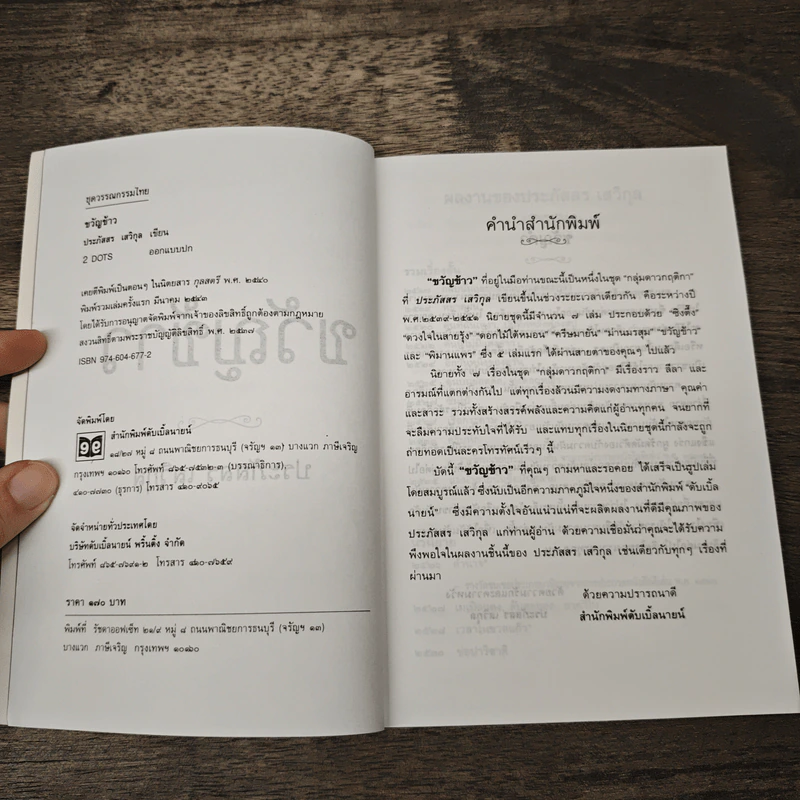 ชุดวรรณกรรมไทย
ขวัญข้าว
ประภัสสร เสวิกุล เขียน
2 DOTS ออกแบบปก
เคยตีพิมพ์เป็นตอนๆ ในนิตยสาร กุลสตรี พ.ศ. ๒๕๔๐
พิมพ์รวมเล่มครั้งแรก มีนาคม ๒๕๔๓
โดยได้รับการอนุญาตจัดพิมพ์จากเจ้าของลิขสิทธิ์ถูกต้องตามกฎหมาย
สงวนลิขสิทธิ์ตามพระราชบัญญัติลิขสิทธิ์ พ.ศ. ๒๕๓๗
ISBN 974-604-677-2
จัดพิมพ์โดย
๑๑
สำนักพิมพ์ดับเบิ้ลนายน์
๑๘/๒๗ หมู่ ๘ ถนนพาณิชยการธนบุรี (จรัญฯ ๑๓) บางแวก ภาษีเจริญ
กรุงเทพฯ ๑๐๑๖๐ โทรศัพท์ ๘๖๕-๗๕๓๒-๓ (บรรณาธิการ),
๔๑๐-๗๗๓๐ (ธุรการ) โทรสาร ๔๑๐-๙๐๖๕
จัดจำหน่ายทั่วประเทศโดย
บริษัทดับเบิ้ลนายน์ พริ้นติ้ง จำกัด
โทรศัพท์ ๘๖๕-๗๖๙๑-๒ โทรสาร ๔๑๐-๗๖๕๙
ราคา ๑๗๐ บาท
พิมพ์ที่ รัชดาออฟเซ็ท ๒๑/๙ หมู่ ๘ ถนนพาณิชยการธนบุรี (จรัญฯ ๑๓)
บางแวก ภาษีเจริญ กรุงเทพฯ ๑๐๑๖๐
คำนำสำนักพิมพ์
"ขวัญข้าว" ที่อยู่ในมือท่านขณะนี้เป็นหนึ่งในชุด "กลุ่มดาวกฤติกา"
ที่ ประภัสสร เสวิกุล เขียนขึ้นในช่วงระยะเวลาเดียวกัน คือระหว่างปี
พ.ศ.๒๕๓๙-๒๕๔๑ นิยายชุดนี้มีจำนวน ๗ เล่ม ประกอบด้วย "ชิงตึ้ง"
"ดวงใจในสายรุ้ง" "ดอกไม้ใต้หมอน" "ครีษมายัน" "ม่านมรสุม" "ขวัญข้าว"
และ "พิมานแพร" ซึ่ง ๕ เล่มแรก ได้ผ่านสายตาของคุณๆ ไปแล้ว
นิยายทั้ง ๗ เรื่องในชุด "กลุ่มดาวกฤติกา" มีเรื่องราว ลีลา และ
อารมณ์ที่แตกต่างกันไป แต่ทุกเรื่องล้วนมีความงดงามทางภาษา คุณค่า
และสาระ รวมทั้งสร้างสรรค์พลังและความคิดแก่ผู้อ่านทุกคน จนยากที่
จะลืมความประทับใจที่ได้รับ และแทบทุกเรื่องในนิยายชุดนี้กำลังจะถูก
ถ่ายทอดเป็นละครโทรทัศน์เร็วๆ นี้
บัดนี้ "ขวัญข้าว" ที่คุณๆ ถามหาและรอคอย ได้เสร็จเป็นรูปเล่ม
โดยสมบูรณ์แล้ว ซึ่งนับเป็นอีกความภาคภูมิใจหนึ่งของสำนักพิมพ์ "ดับเบิ้ล
นายน์" ซึ่งมีความตั้งใจอันแน่วแน่ที่จะผลิตผลงานที่ดีมีคุณภาพของ
ประภัสสร เสวิกุล แก่ท่านผู้อ่าน ด้วยความเชื่อมั่นว่าคุณจะได้รับความ
พึงพอใจในผลงานชิ้นนี้ของ ประภัสสร เสวิกุล เช่นเดียวกับทุกๆ เรื่องที่
ผ่านมา
ด้วยความปรารถนาดี
สำนักพิมพ์ดับเบิ้ลนายน์